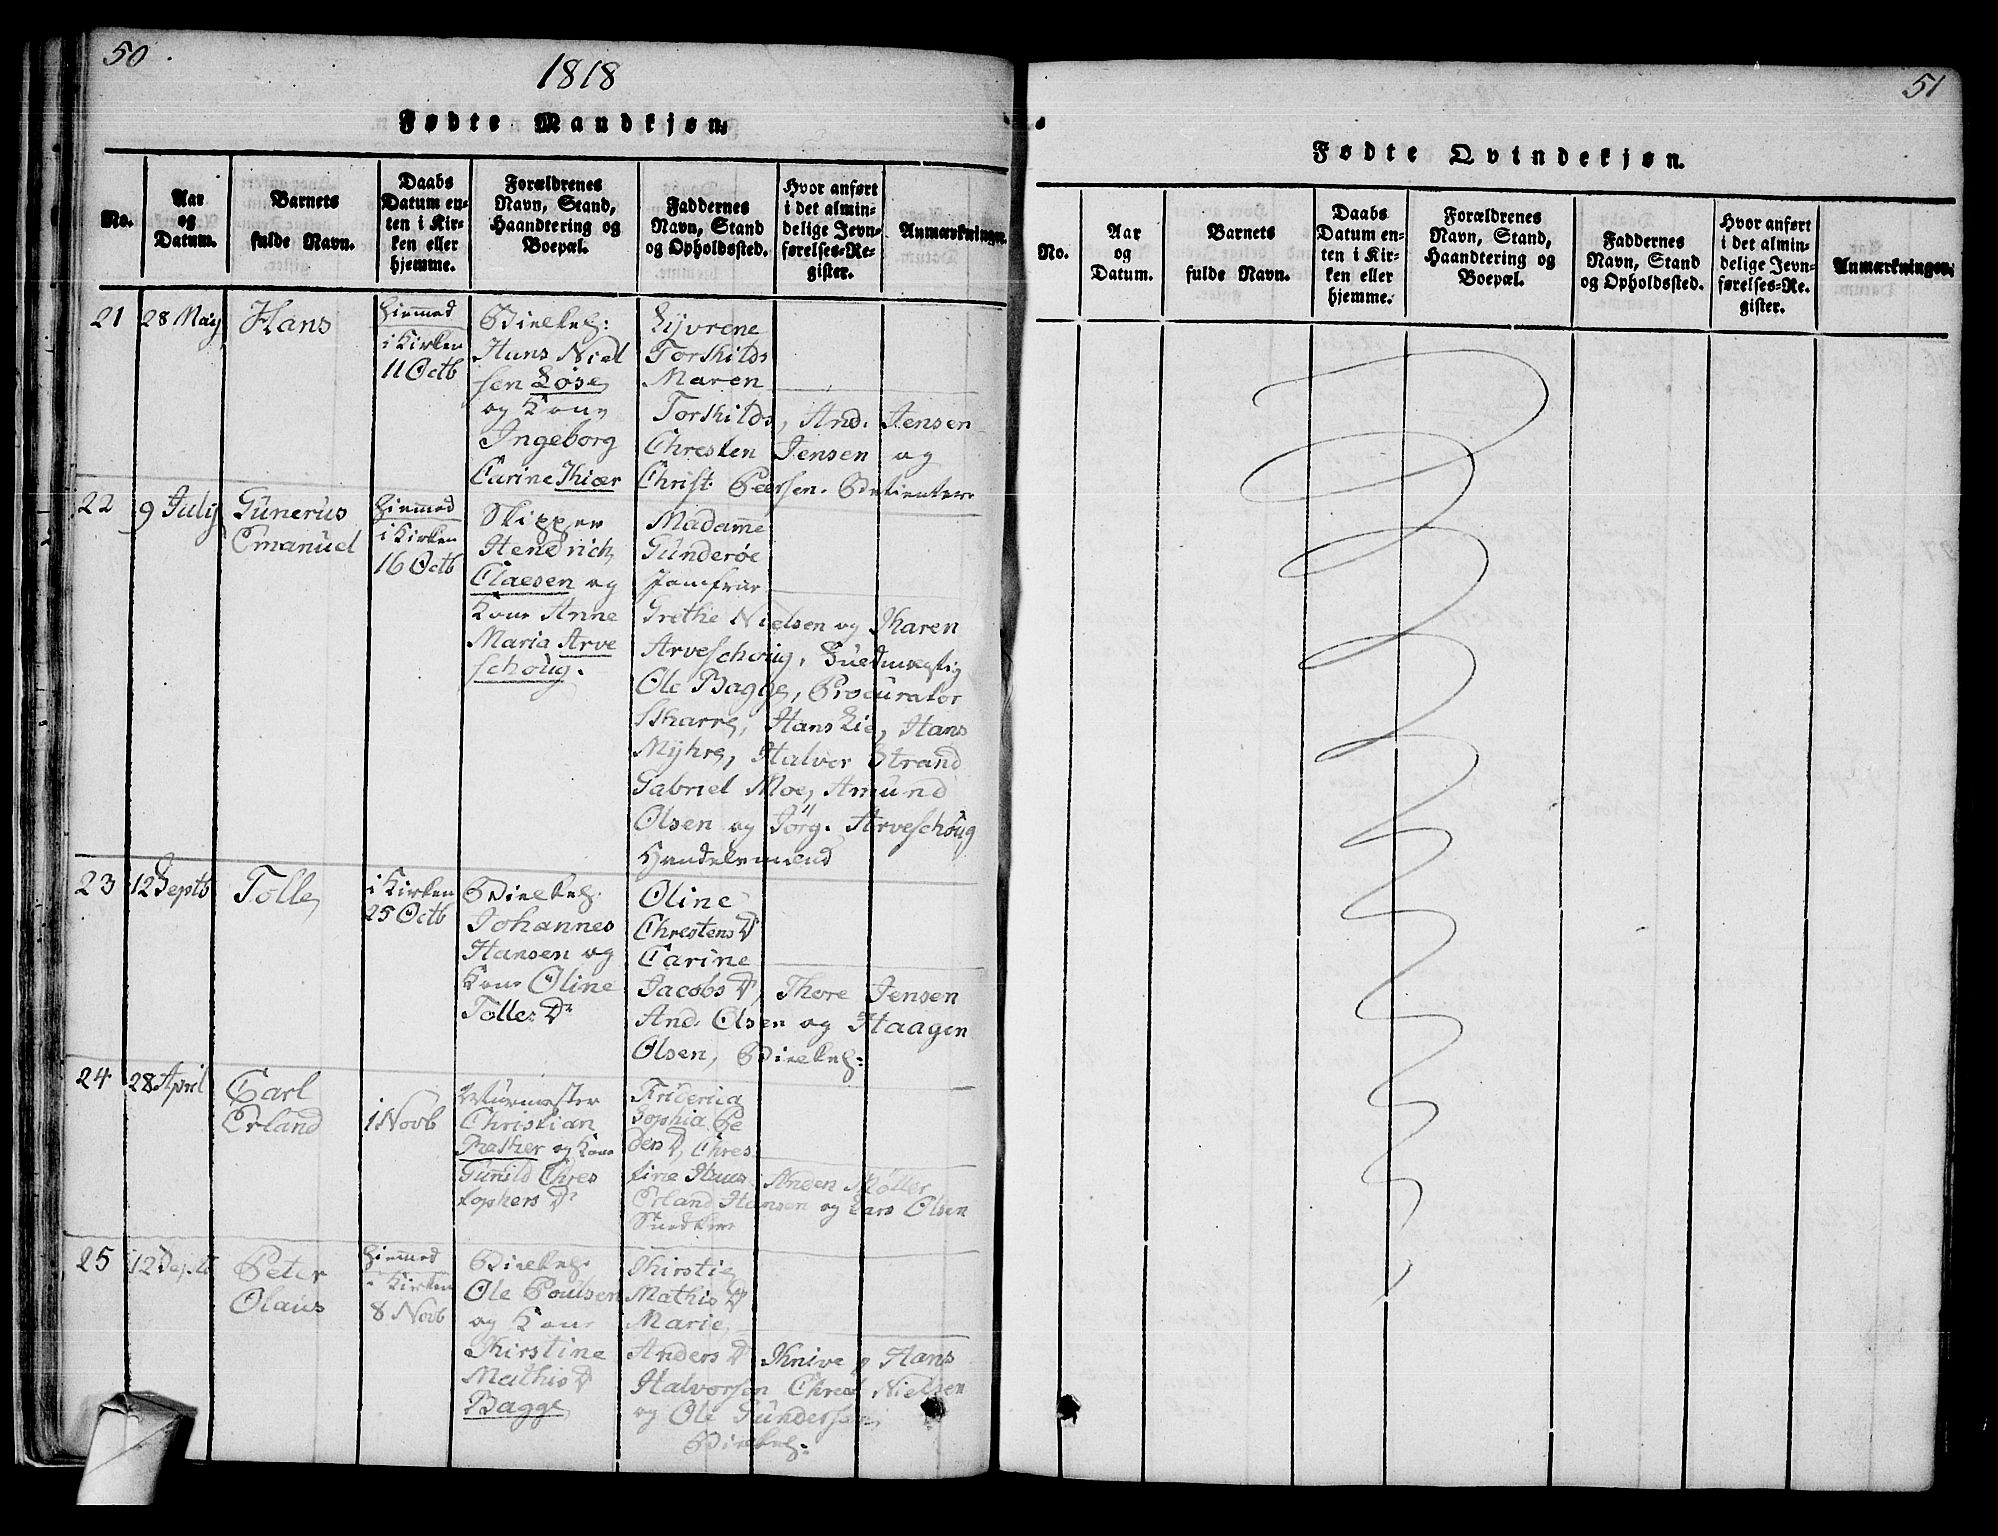 50
1818
Fødte Mandkjøn.
No.
Aar
og
Datum.
Barnets
fulde Navn.
Daabs
Datum en-
ten i Kir-
ken eller
hjemme.
Forældrenes
Navn, Stand,
Haandtering og
Boepæl.
Faddernes
Navn, Stand
og Opholdssted.
Hvor anført
i det almin-
delige Jevn-
førelses-Re-
gister.
Anmærkninger.
21
28 May
Hans
Hiemmed
i Kirken
11 Octb
Hans Niel
sen Løse
og Kone
Ingeborg
Carine Thiær
Torkilds
Maren
Torkilds, And. Jensen
Chresten Jensen og
Christ. Peersen.
22
9 July
Gunerus
Emanuel
Hiemmed
i Kirken
16 Octb
Skipper
Hendrich
Claesen og
Kone Anne
Maria Arve
schoug.
Madame
Gunderöe
Jomfrue
Grethe Nielsen og Karen
Arveschoug,
Ole Bagge, Procurator
Skarre, Hans Lie, Hans
Myhre, Halvor Strand
Gabriel Moe, Amund
Olsen og Jörg. Arveschoug
23
12 Septb
Tolle
i Kirken
25 Octb
Johannes
Hansen og
Kone Oline
Tolles Dr
Oline
Chrestens D
Carine
Jacobs D, Thore Jensen
And. Olsen og Haagen
Olsen,
24
28 April
Carl
Erland
1 Novb
Christian
og Kone
Gunild Chres
tophers Dr
Fridericia
Sophia Pe
ders D, Chres
tine Møller
Erland Hansen og Lars Olsen
25
12 Sept
Peter
Olaus
Hiemmed
i Kirken
8 Novb
Ole Poulsen
og Kone
Kirstine
Mathis D
Bagge
Kirstie
Mathis D
Marie
Anders D Knive, Hans
Halvorsen Nielsen
og Ole Gundersen
51
Fødte Qvindekjøn.
No.
Aar
og
Datum.
Barnets
fulde Navn.
Daabs
Datum en-
ten i Kir-
ken eller
hjemme.
Forældrenes
Navn, Stand,
Haandtering og
Boepæl.
Faddernes
Navn, Stand
og Opholdssted.
Hvor anført
i det almin-
delige Jevn-
førelses-Re-
gister.
Anmærkninger.